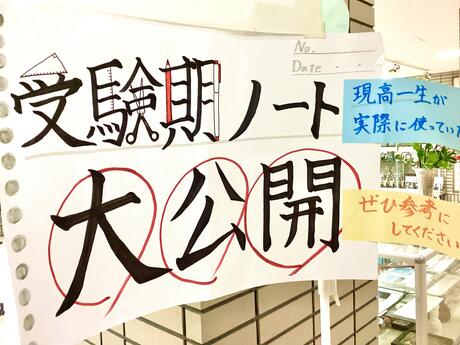 No.
Date ・ ・
受験期ノート
大公開
現高一生が
実際に使っていた
ぜひ参考に
してください